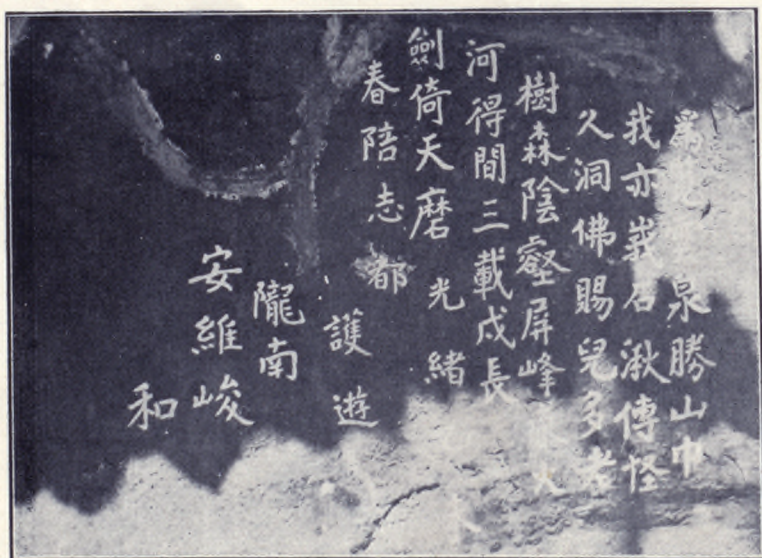 爲泉勝山巾
我亦峩名湫傳怪
久洞佛賜兒多老
樹森陰壑屏峰
河得間三載戍長
劍倚天磨 光緒
春陪志都
護遊
隴南
安維峻
和